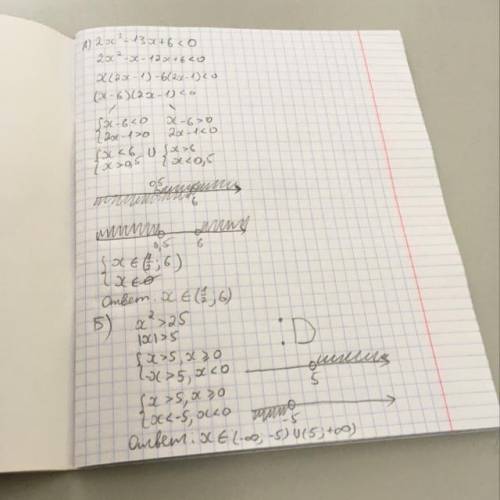 А) 2x² - 13x + 6 < 0
2x² - x - 12x + 6 < 0
x(2x - 1) - 6(2x - 1) < 0
(x - 6)(2x - 1) < 0
{ x - 6 < 0   x - 6 > 0
{ 2x - 1 > 0   2x - 1 < 0
{ x < 6   U   { x > 6
{ x > 0,5   { x < 0,5
0,5   6
0,5   6
{ x ∈ (1/2; 6)
{ x ∈ ∅
Ответ: x ∈ (1/2; 6)
Б) x² > 25
|x| > 5
:D
{ x > 5, x ≥ 0
{ -x > 5, x < 0
5
{ x > 5, x ≥ 0
{ x < -5, x < 0
-5
Ответ: x ∈ (-∞; -5) U (5; +∞)